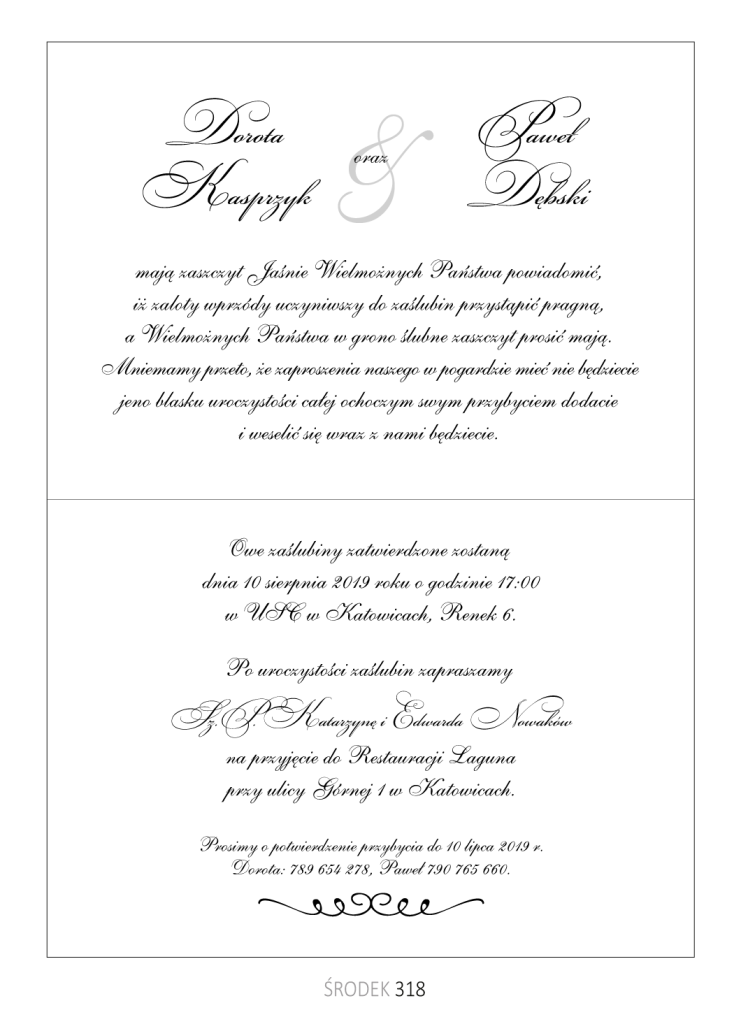 Dorota
Kasprzyk
oraz
&
Paweł
Dębski
mają zaszczyt Jaśnie Wielmożnych Państwa powiadomić,
iż zaloty wprzódy uczyniwszy do zaślubin przystąpić pragną,
a Wielmożnych Państwa w grono ślubne zaszczyt prosić mają.
Mniemamy przeto, że zaproszenia naszego w pogardzie mieć nie będziecie
jeno blasku uroczystości całej ochoczym swym przybyciem dodacie
i weselić się wraz z nami będziecie.
Owe zaślubiny zatwierdzone zostaną
dnia 10 sierpnia 2019 roku o godzinie 17:00
w USC w Katowicach, Renek 6.
Po uroczystości zaślubin zapraszamy
Sz. P. Katarzynę i Edwarda Nowaków
na przyjęcie do Restauracji Laguna
przy ulicy Górnej 1 w Katowicach.
Prosimy o potwierdzenie przybycia do 10 lipca 2019 r.
Dorota: 789 654 278, Paweł 790 765 660.
ŚRODEK 318